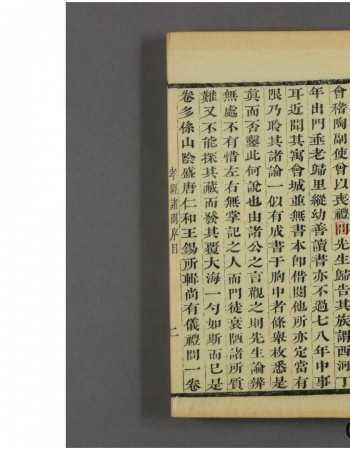 會稽陶副使曾以喪禮問先生歸告其族謂西河丁
年出門垂老歸里縱幼善讀書亦不過七八年中事
耳近聞其寓會城並無書本卽借閱他所亦定當有
限乃聆其諸論一似有成書于胸中者條舉枚悉是
眞而否鑿此何說也由諸公之言觀之則先生論辨
無處不有惜左右無掌記之人而門徒衰陋諸所質
難又不能探其藏而發其覆大海一勺如斯而已是
卷多係山陰盛唐仁和王錫所輯尚有儀禮問一卷
序目
二